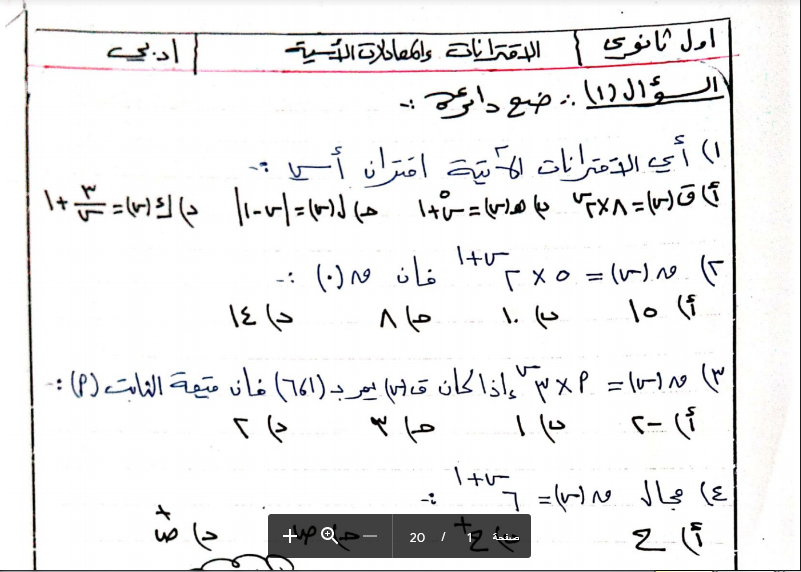 اول ثانوي } الاقترانات والمعادلات الأسية { أدبي
السؤال (١) :. ضع دائرة :-
١) أي الاقترانات الآتية اقتران أسي :-
أ) ق(س) = ٨ × ٢^س ب) هـ(س) = س^٥ + ١ حـ) ل(س) = |س - ١| د) ك(س) = ٣/س + ١
٢) ق(س) = ٥ × ٢^(س+١) فان ق(٠) :-
أ) ١٥ ب) ١٠ حـ) ٨ د) ١٤
٣) ق(س) = م × ٣^س إذا كان ق(س) يمر بـ (١،٦) فان قيمة الثابت (م) :-
أ) -٢ ب) ١ حـ) ٣ د) ٢
٤) مجال ق(س) = ٦^(س+١) :-
أ) ح ح+ د) ص+
صفحة 1 / 20